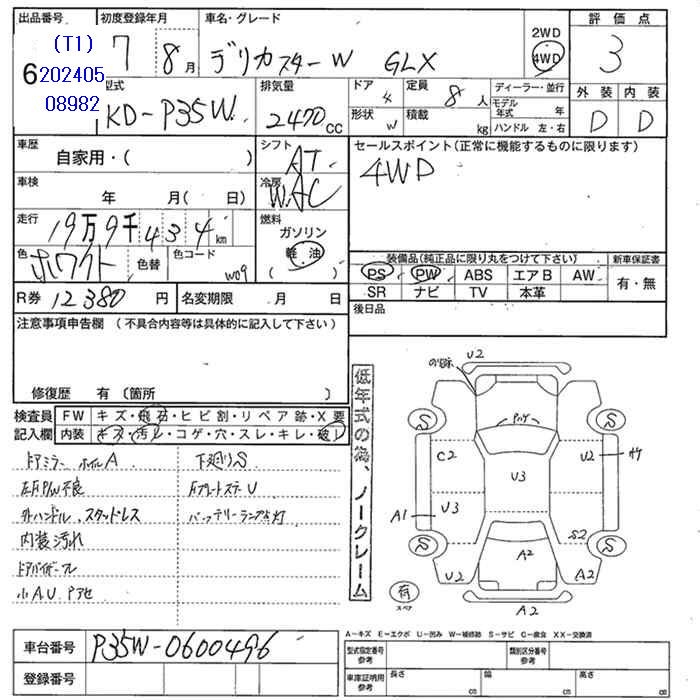 出品番号 初度登録年月 車名・グレード 2WD 評価点
(T1)
6 202405
08982
7 8月 デリカスターW GLX 4WD 3
型式 排気量 ドア 定員 ディーラー・並行 外装 内装
KD-P35W 2470cc 4 8人 モデル年式 年 D D
形状 W 積載 kg ハンドル 左・右
車歴 シフト セールスポイント(正常に機能するものに限ります)
自家用・( ) AT 4WD
車検 冷房
年 月( 日) WAC
走行 燃料
19万9千434km ガソリン
色 ホワイト 色替 色コード W09 軽油
( )
装備品(純正品に限り丸をつけて下さい) 新車保証書
PS PW ABS エアB AW 有・無
SR ナビ TV 本革
R券 12380円 名変期限 月 日 後日品
注意事項申告欄 (不具合内容等は具体的に記入して下さい)
修復歴 有(箇所 )
検査員 FW キズ・飛石・ヒビ割・リペア跡・X要
記入欄 内装 キズ・汚レ・コゲ・穴・スレ・キレ・破レ
ドアミラー ホイルA 下廻りS
左FP/W不良 FプレートステーU
外ハンドル、スタッドレス バッテリーランプ点灯
内装汚れ
ドアバイザーワレ
小AU Pアセ
低年式の為、ノークレーム
U2
S S
C2 U2
U3
U3
A1
S2
S S
U2 A2 A2
A2
有
スペア
A-キズ E-エクボ U-凹み W-補修跡 S-サビ C-腐食 XX-交換済
車台番号 P35W-0600496
登録番号
型式指定番号 参考 類別区分番号 参考
車庫証明用 参考 長さ cm 幅 cm 高さ cm